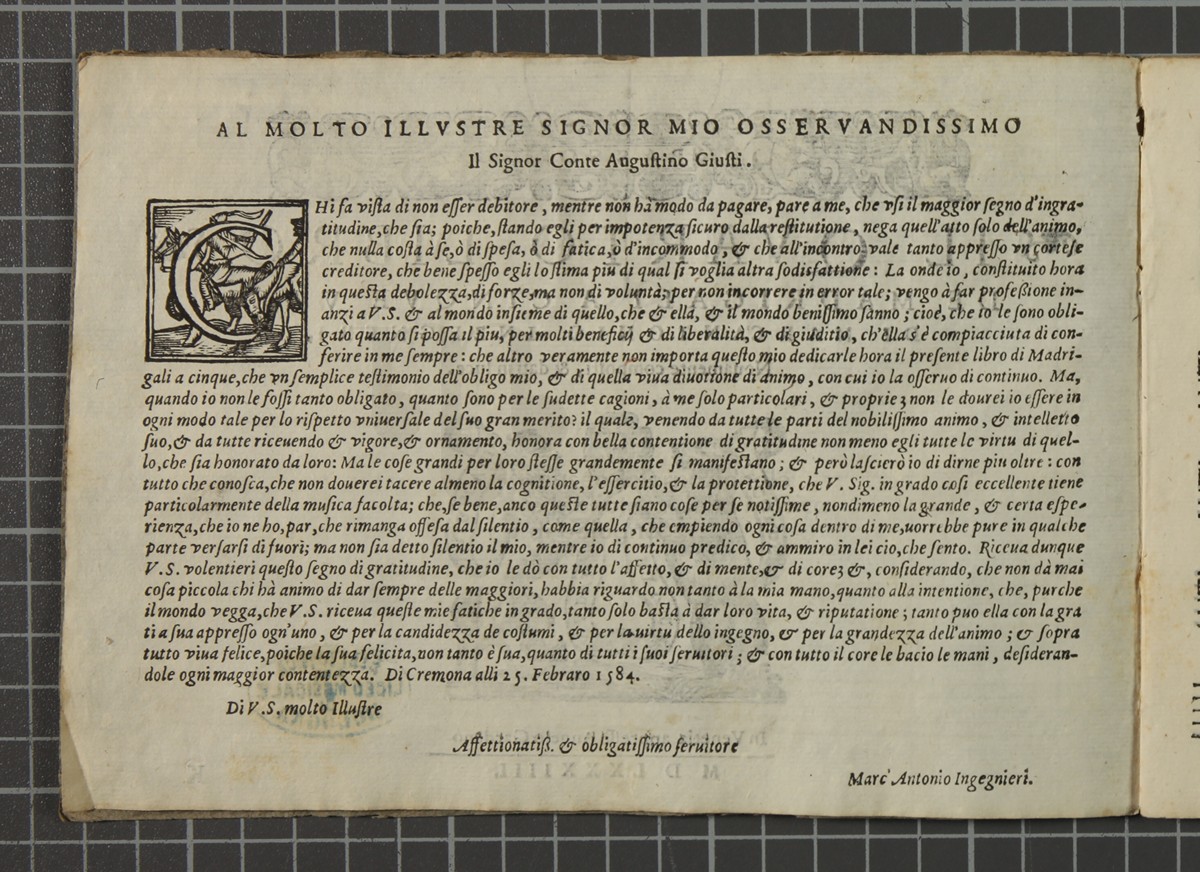 AL MOLTO ILLVSTRE SIGNOR MIO OSSERVANDISSIMO
Il Signor Conte Auguſtino Giuſti.
CHi fa viſta di non eſſer debitore, mentre non hà modo da pagare, pare a me, che vſi il maggior ſegno d'ingra-
titudine, che ſia; poiche, ſtando egli per impotenza ſicuro dalla reſtitutione, nega quell'atto ſolo dell'animo,
che nulla coſta à ſe, ò di ſpeſa, ò di fatica, ò d'incommodo, & che all'incontro vale tanto appreſſo vn corteſe
creditore, che bene ſpeſſo egli lo ſtima piu di qual ſi voglia altra ſodisfattione: La onde io, conſtituito hora
in queſta debolezza, di forze, ma non di voluntà; per non incorrere in error tale; vengo à far profeßione in-
anzi a V.S. & al mondo inſieme di quello, che & ella, & il mondo beniſſimo ſanno; cioè, che io le ſono obli-
gato quanto ſi poſſa il piu, per molti beneficij & di liberalità, & di giuditio, ch'ella s'è compiacciuta di con-
ferire in me ſempre: che altro veramente non importa queſto mio dedicarle hora il preſente libro di Madri-
gali a cinque, che vn ſemplice teſtimonio dell'obligo mio, & di quella viua diuotione di animo, con cui io la oſſeruo di continuo. Ma,
quando io non le foſſi tanto obligato, quanto ſono per le ſudette cagioni, à me ſolo particolari, & proprie; non le dourei io eſſere in
ogni modo tale per lo riſpetto vniuerſale del ſuo gran merito? il quale, venendo da tutte le parti del nobiliſſimo animo, & intelletto
ſuo, & da tutte riceuendo & vigore, & ornamento, honora con bella contentione di gratitudine non meno egli tutte le virtu di quel-
lo, che ſia honorato da loro: Ma le coſe grandi per loro ſteſſe grandemente ſi manifeſtano; & però laſcierò io di dirne piu oltre: con
tutto che conoſca, che non douerei tacere almeno la cognitione, l'eſſercitio, & la protettione, che V. Sig. in grado coſi eccellente tiene
particolarmente della muſica facolta; che, ſe bene, anco queſte tutte ſiano coſe per ſe notiſſime, nondimeno la grande, & certa eſpe-
rienza, che io ne ho, par, che rimanga offeſa dal ſilentio, come quella, che empiendo ogni coſa dentro di me, uorrebbe pure in qualche
parte verſarſi di fuori; ma non ſia detto ſilentio il mio, mentre io di continuo predico, & ammiro in lei cio, che ſento. Riceua dunque
V.S. volentieri queſto ſegno di gratitudine, che io le dò con tutto l'affetto, & di mente, & di core; &, conſiderando, che non dà mai
coſa piccola chi hà animo di dar ſempre delle maggiori, habbia riguardo non tanto à la mia mano, quanto alla intentione, che, purche
il mondo vegga, che V.S. riceua queſte mie fatiche in grado, tanto ſolo baſta à dar loro vita, & riputatione; tanto puo ella con la gra
tia ſua appreſſo ogn'uno, & per la candidezza de coſtumi, & per la virtu dello ingegno, & per la grandezza dell'animo; & ſopra
tutto viua felice, poiche la ſua felicita, non tanto è ſua, quanto di tutti i ſuoi ſeruitori; & con tutto il core le bacio le mani, deſideran-
dole ogni maggior contentezza. Di Cremona alli 25. Febraro 1584.
Di V.S. molto Illuſtre
Affettionatiß. & obligatiſſimo ſeruitore
Marc' Antonio Ingegnieri.